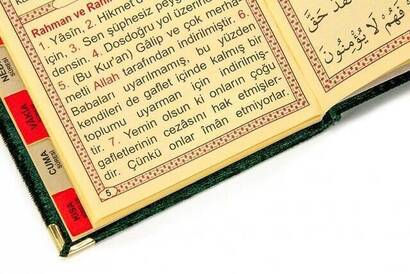 Rahman ve Rah
1. Yâsîn, 2. Hikmet
için, 3. Sen şüphesiz peyg
densin. 4. Dosdoğru yol üzerin
5. (Bu Kur'an) Gâlip ve çok merha
metli Allah tarafından indirilmiştir. 6.
Babaları uyarılmamış, bu yüzden
kendileri de gaflet içinde kalmış bir
toplumu uyarman için indirilmiş-
tir. 7. Yemin olsun ki onların çoğu
gafletlerinin cezasını hak etmişler-
dir. Çünkü onlar îmân etmiyorlar.
5
فَهُمْ لَا يُؤْمِنُونَ
VÂKIA
CUMA
SÛRESİ
KISA